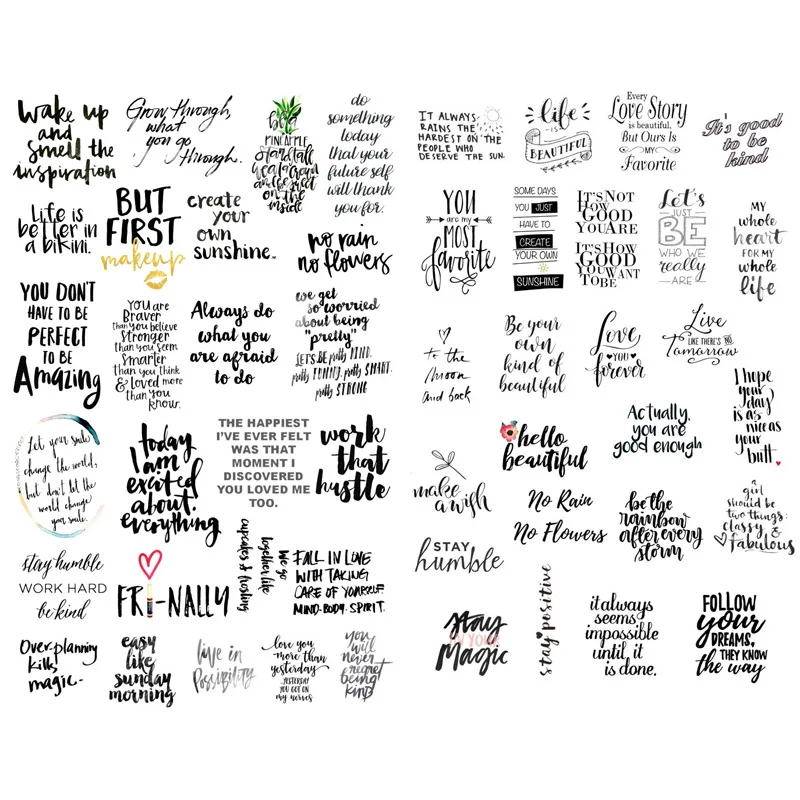 wake up
and
smell the
inspiration
Grow through,
what
you go
through.
be a
PINEAPPLE
stand tall
wear a crown
and be sweet
on the
inside
do
something
today
that your
future self
will thank
you for.
Life is
better in
a bikini.
BUT
FIRST
makeup
create
your
own
sunshine.
no rain
no flowers
YOU DON'T
HAVE TO BE
PERFECT
TO BE
Amazing
You are
Braver
than you believe
Stronger
than you seem
Smarter
than you think
& Loved more
than you
know.
Always do
what you
are afraid
to do
we get
so worried
about being
"pretty"
LET'S BE pretty KIND.
pretty FUNNY. pretty SMART.
pretty STRONG
Let your smile
change the world,
but don't let the
world change
your smile.
today
I am
excited
about
everything
THE HAPPIEST
I'VE EVER FELT
WAS THAT
MOMENT I
DISCOVERED
YOU LOVED ME
TOO.
work
that
hustle
stay humble
WORK HARD
be kind
FRI-NALLY
we go
together like
cupcakes & frosting
FALL IN LOVE
WITH TAKING
CARE OF YOURSELF
MIND. BODY. SPIRIT.
Over-planning
kills
magic-
easy
like
sunday
morning
live in
Possibility
love you
more than
yesterday
YESTERDAY
YOU GOT ON
my nerves
you
will
never
regret
being
kind
IT ALWAYS
RAINS THE
HARDEST ON THE
PEOPLE WHO
DESERVE THE SUN.
life
IS
BEAUTIFUL
Every
Love Story
is beautiful,
But Ours Is
MY
Favorite
It's good
to be
kind
YOU
are my
MOST
favorite
SOME DAYS
YOU JUST
HAVE TO
CREATE
YOUR OWN
SUNSHINE
IT'S NOT
HOW
GOOD
YOU ARE
IT'S HOW
GOOD
YOU WANT
TO BE
Let's
JUST
BE
WHO WE
really
ARE
MY
whole
heart
FOR MY
whole
life
to the
moon
and back
Be your
own
kind of
beautiful
Love
YOU
forever
Live
LIKE THERE'S NO
Tomorrow
I hope
your
day
is as
nice as
your
butt.
make
a wish
hello
beautiful
Actually,
you are
good enough
No Rain
No Flowers
be the
rainbow
after every
storm
a
girl
should be
two things:
classy &
fabulous
STAY
humble
stay
IN YOUR
Magic
stay positive
it always
seems
impossible
until, it
is done.
FOLLOW
your
DREAMS,
THEY KNOW
the way